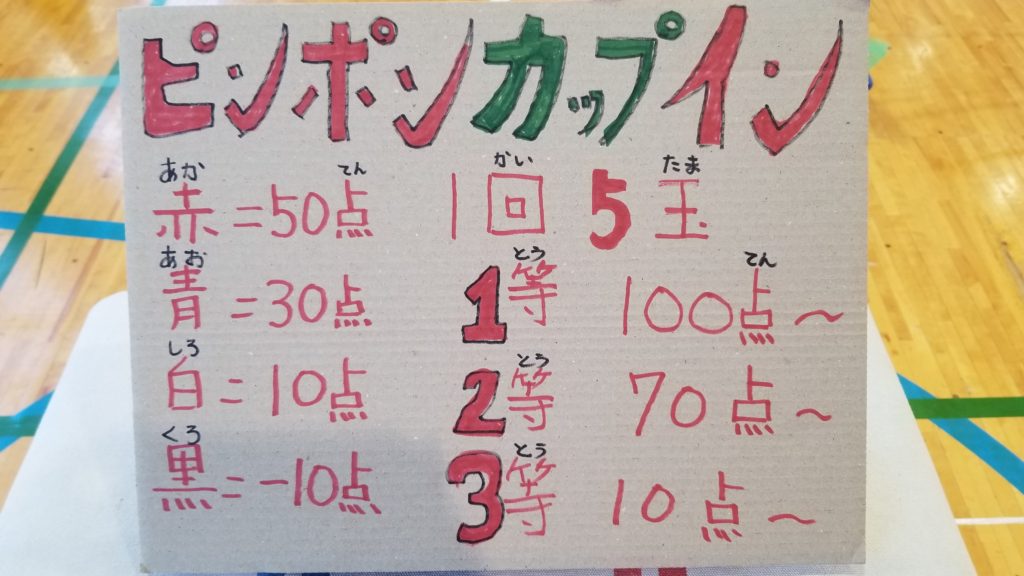 ピンポンカップイン
あか てん かい たま
赤=50点 1回 5玉
あお とう てん
青=30点 1等 100点～
しろ とう
白=10点 2等 70点～
くろ とう
黒=-10点 3等 10点～